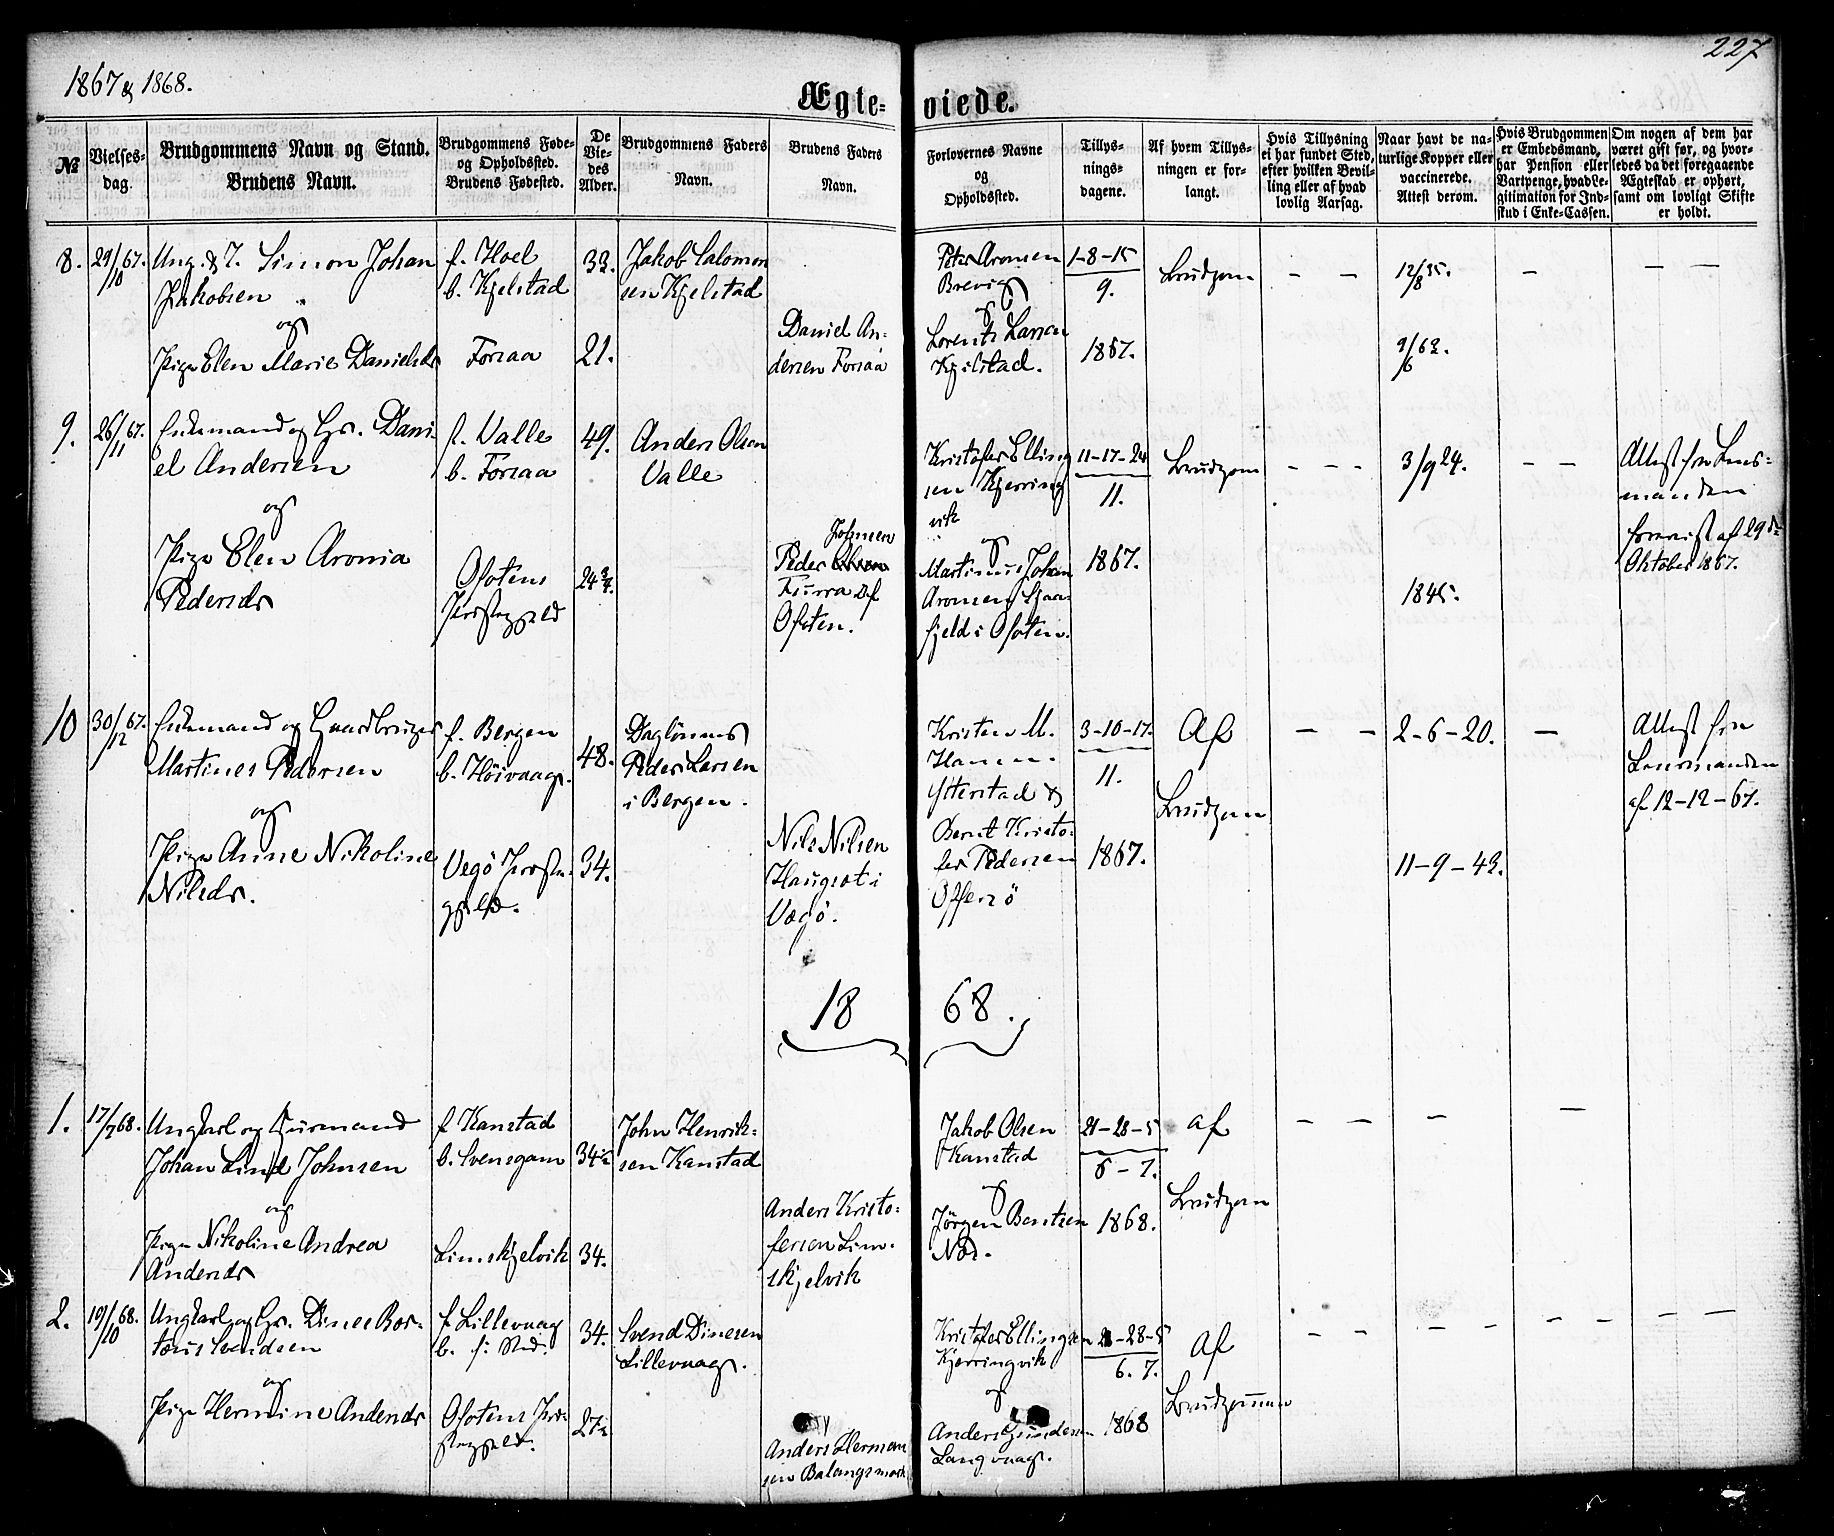 227
1867 & 1868.
Ægte-viede.
No
Vielses-
dag.
Brudgommens Navn og Stand.
Brudens Navn.
Brudgommens Føde-
og Opholdssted.
Brudens Fødested.
De
Vie-
des
Alder.
Brudgommens Faders
Navn.
Brudens Faders
Navn.
Forlovernes Navne
og
Opholdssted.
Tillys-
nings-
dagene.
Af hvem Tillys-
ningen er for-
langt.
Hvis Tillysning
ei har fundet Sted,
efter hvilken Bevil-
ling eller af hvad
lovlig Aarsag.
Naar havt de na-
turlige Kopper eller
vaccinerede.
Attest derom.
Hvis Brudgommen
er Embedsmand,
har Pension eller
Vartpenge, hvad Le-
gitimation for Ind-
skud i Enke-Cassen.
Om nogen af dem har
været gift før, og hvor-
ledes da det foregaaende
Ægteskab er ophørt,
samt om lovligt Skifte
er holdt.
8.
29/10 67.
Ung. & I. Simon Johan
Jakobsen
og
Pige Elen Marie Danielsdr
f. Hoel
b. Kjelstad
Forsaa
33.
21.
Jakob Salomon
sen Kjelstad
Daniel An-
dersen Forsaa
Peter Aronsen
Brevig
&
Lorents Larsen
Kjelstad.
1-8-15
9.
1867.
Brudgom
— —
12/8 35.
3/6 62.
—
— —
9.
26/11 67.
Enkemand og Gr. Dani-
el Andersen
og
Pige Elen Aronia
Pedersdr
f. Valle
b. Forsaa
Ofotens
Præstegjeld
49.
24 3/4.
Anders Olsen
Valle
Johnsen
Peder Olsen
Furra af
Ofoten.
Kristofer Elling
sen Kjerring
vik
&
Martinus Johan
Aronsen
fjeld i Ofoten.
11-17-24
11.
1867.
Brudgom
— — —
3/9 24.
1845.
— —
Attest fra Lens-
manden
af 29de
Oktober 1867.
10
30/12 67.
Enkemand og Gaardbruger
Martines Pedersen
og
Pige Anne Nikoline
Nilsdr.
f. Bergen
b. Höivaag.
Vegö Præste-
gjeld.
48.
34.
Daglönner
Peder Larsen
i Bergen.
Nils Nilsen
Haugrot i
Vægö.
Kristen M.
Hansen.
Ytterstad &
Bernt Kristo-
fer Pedersen
Offersö
3-10-17.
11.
1867.
Af
Brudgom
— —
2-6-20.
11-9-42.
—
Attest fra
Lensmanden
af 12-12-67.
18 68.
1.
17/7 68.
Ungkarl og Huusmand
Johan Lind Johnsen
og
Pige Nikoline Andrea
Andersdr
f. Kanstad
b. Svensgam
Limskjelvik
34½
34.
John Henrik-
sen Kanstad
Anders Kristo-
fersen Lim-
skjelvik
Jakob Olsen
Kanstad
&
Jörgen Bentsen
Næs.
21-28-5
6-7.
1868.
af
Brudgom
— —
—
—
2.
19/10 68.
Ungkarl og Gr. Dines Bor-
tæus Svendsen
og
Pige Hermine Andersdr
f. Lillevaag
b. f: Sted.
Ofotens Præ-
stegjeld.
34.
27½
Svend Dinesen
Lillevaag.
Anders Herman
sen Balangsmark
Kristofer Ellingsen
Kjerringvik
&
Anders Gundersen
Langvaag.
21-28-5
6.7.
1868
Af
Brudgommen
— —
— —
— —
— —